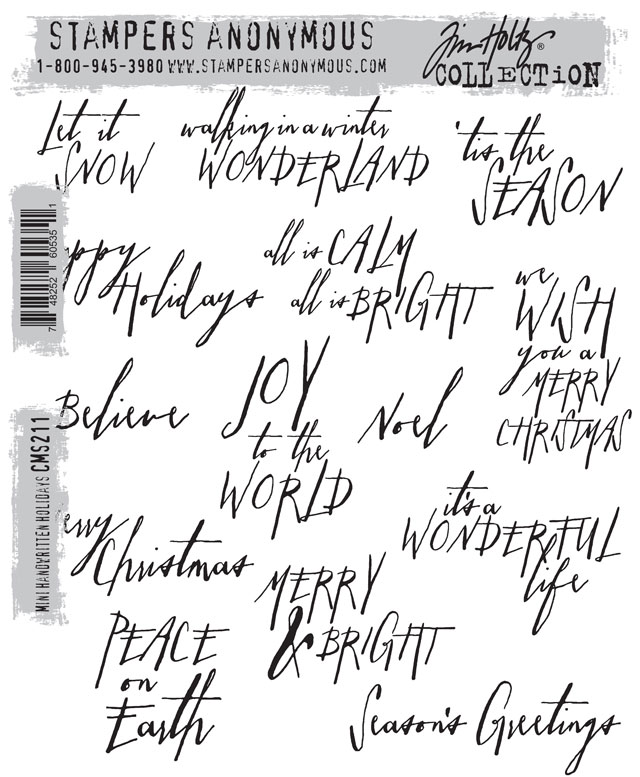 STAMPERS ANONYMOUS
1-800-945-3980 WWW.STAMPERSANONYMOUS.COM
Tim Holtz®
COLLECTION
Let it
SNOW
walking in a winter
WONDERLAND
'tis the
SEASON
ppy
Holidays
all is CALM
all is BRIGHT
we
WISH
you a
MERRY
CHRISTMAS
7 48252 60535 1
Believe
JOY
to the
WORLD
Noel
MINI HANDYRITTEN HOLIDAYS CMS211
erry
Christmas
it's a
WONDERFUL
life
MERRY
& BRIGHT
PEACE
on
Earth
Season's Greetings